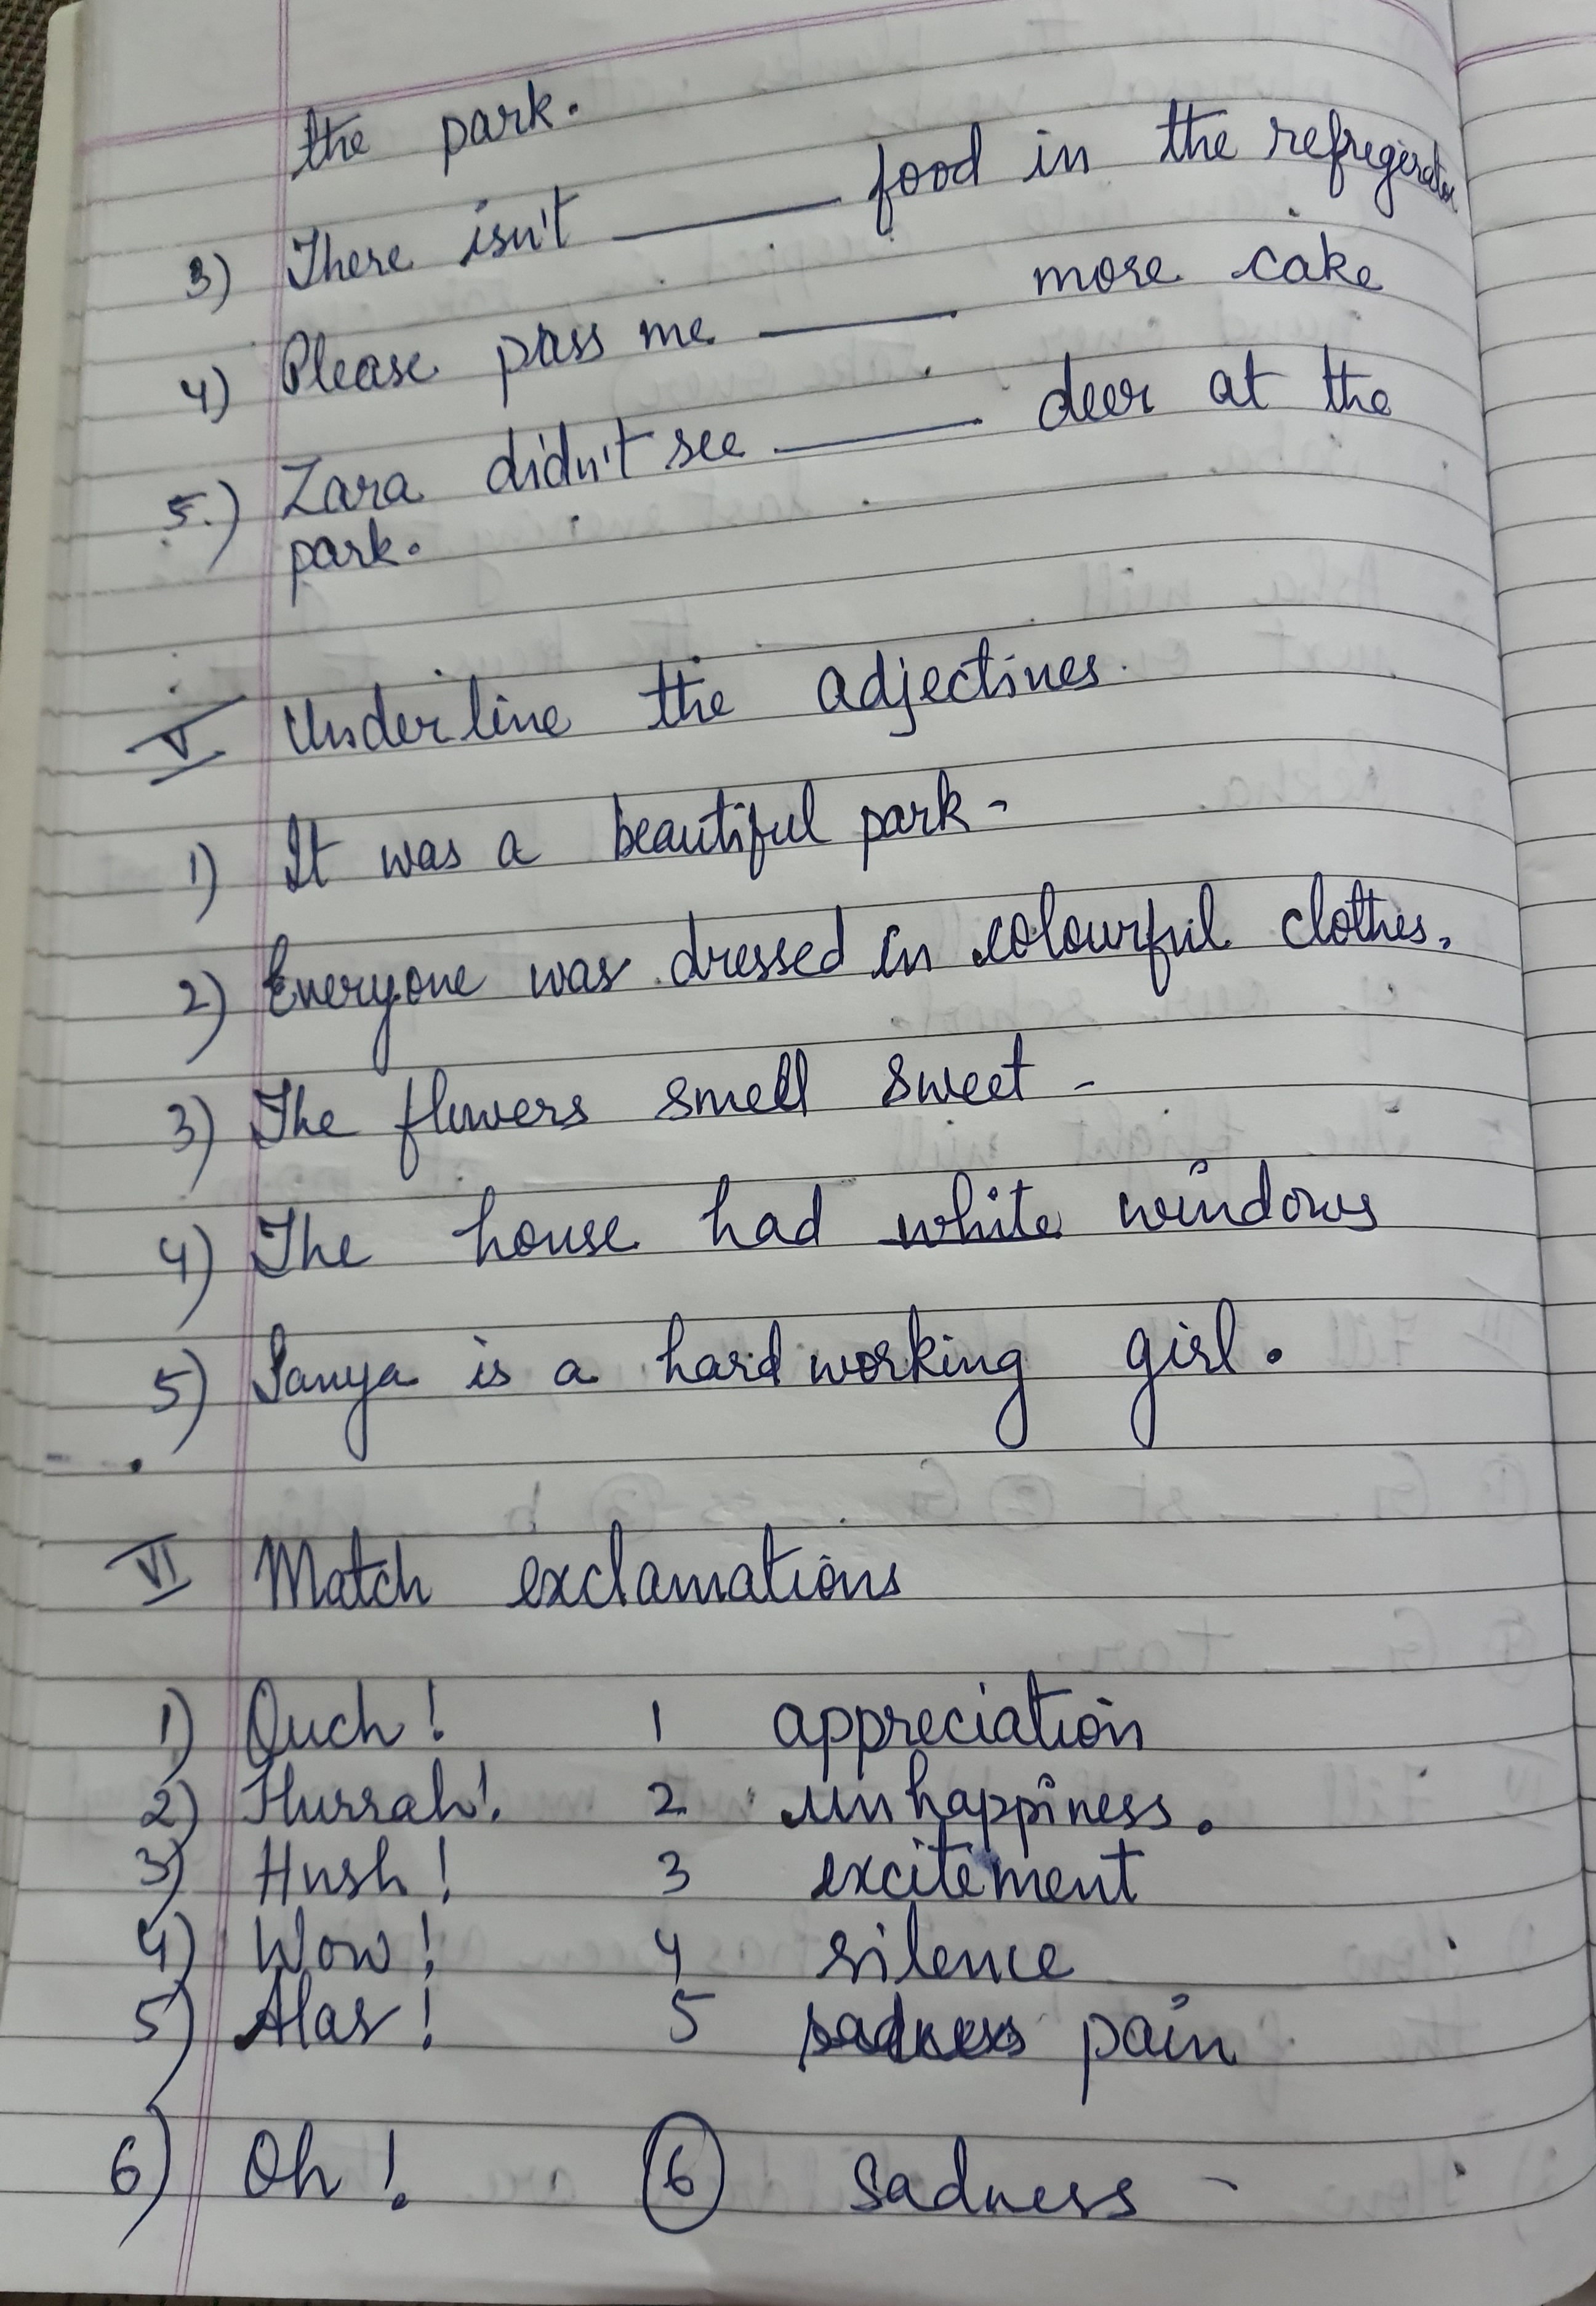 the park.
3) There isn't ______ food in the refregerator
4) Please pass me ______ more cake
5.) Zara didn't see ______ deer at the
park.
V Underline the adjectives.
1) It was a beautiful park-
2) Everyone was dressed in colourful clothes.
3) The flowers smell sweet -
4) The house had white windows
5) Sanya is a hardworking girl.
VI Match exclamations
1) Ouch! 1 appreciation
2) Hurrah! 2 unhappiness.
3) Hush! 3 excitement
4) Wow! 4 silence
5) Alas! 5 sadness pain
6) Oh! 6 Sadness -